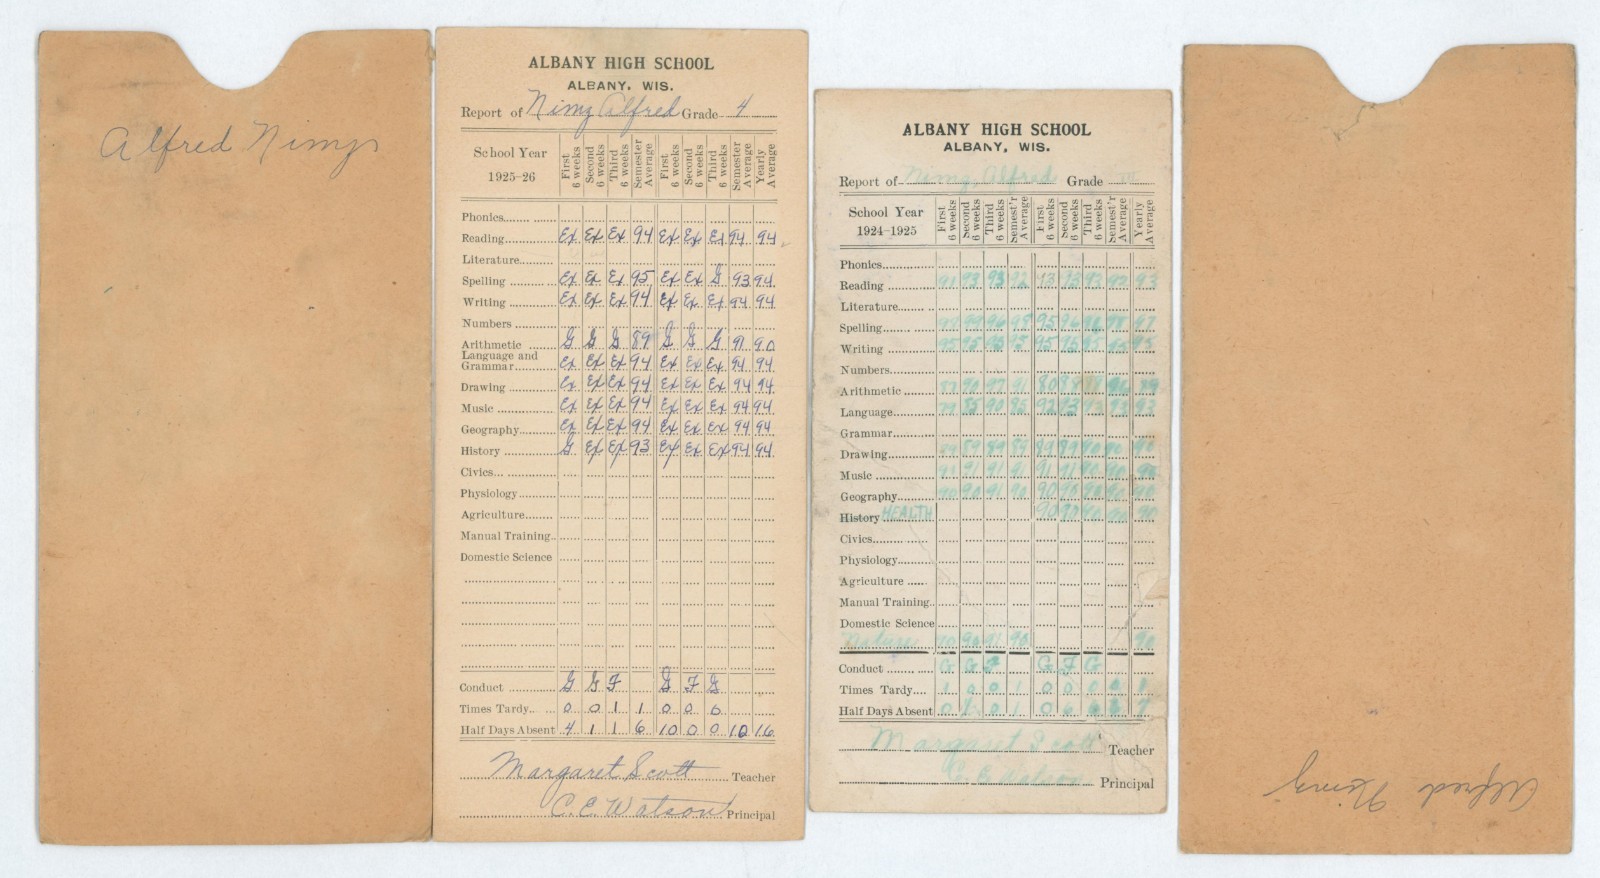 Alfred Nimy
ALBANY HIGH SCHOOL
ALBANY, WIS.
Report of Nimy Alfred Grade 4
School Year 1925-26 First 6 weeks Second 6 weeks Third 6 weeks Semester Average First 6 weeks Second 6 weeks Third 6 weeks Semester Average Yearly Average
Phonics
Reading Ex Ex Ex 94 Ex Ex Ex 94 94
Literature
Spelling Ex Ex Ex 95 Ex Ex G 93 94
Writing Ex Ex Ex 94 Ex Ex Ex 94 94
Numbers
Arithmetic G G G 89 G G G 91 90
Language and Grammar Ex Ex Ex 94 Ex Ex Ex 94 94
Drawing Ex Ex Ex 94 Ex Ex Ex 94 94
Music Ex Ex Ex 94 Ex Ex Ex 94 94
Geography Ex Ex Ex 94 Ex Ex Ex 94 94
History G Ex Ex 93 Ex Ex Ex 94 94
Civics
Physiology
Agriculture
Manual Training
Domestic Science
Conduct G G F G F G
Times Tardy 0 0 1 1 0 0 0
Half Days Absent 4 1 1 6 10 0 0 10 16
Margaret Scott Teacher
C. E. Watson Principal
ALBANY HIGH SCHOOL
ALBANY, WIS.
Report of Nimy, Alfred Grade III
School Year 1924-1925 First 6 weeks Second 6 weeks Third 6 weeks Semest'r Average First 6 weeks Second 6 weeks Third 6 weeks Semest'r Average Yearly Average
Phonics
Reading 91 93 93 92 93 93 93
Literature
Spelling 99 96 98 95 96 98 97
Writing 95 95 95 95 95 95 95 95 95
Numbers
Arithmetic 90 97 91 80 88
Language 85 90 85 92 93
Grammar
Drawing 89 89 89 89 89 90 90 90
Music 91 91 91 91 91 90 90
Geography 90 90 91 90 90 90 90 90 90
History HEALTH 90 90 90 90 90
Civics
Physiology
Agriculture
Manual Training
Domestic Science
Nature 90 90 91 90 90
Conduct G G F G F G
Times Tardy 1 0 0 1 0 0 0 0 1
Half Days Absent 0 1 0 1 0 6 7
Margaret Scott Teacher
C. E. Watson Principal
Alfred Nimy